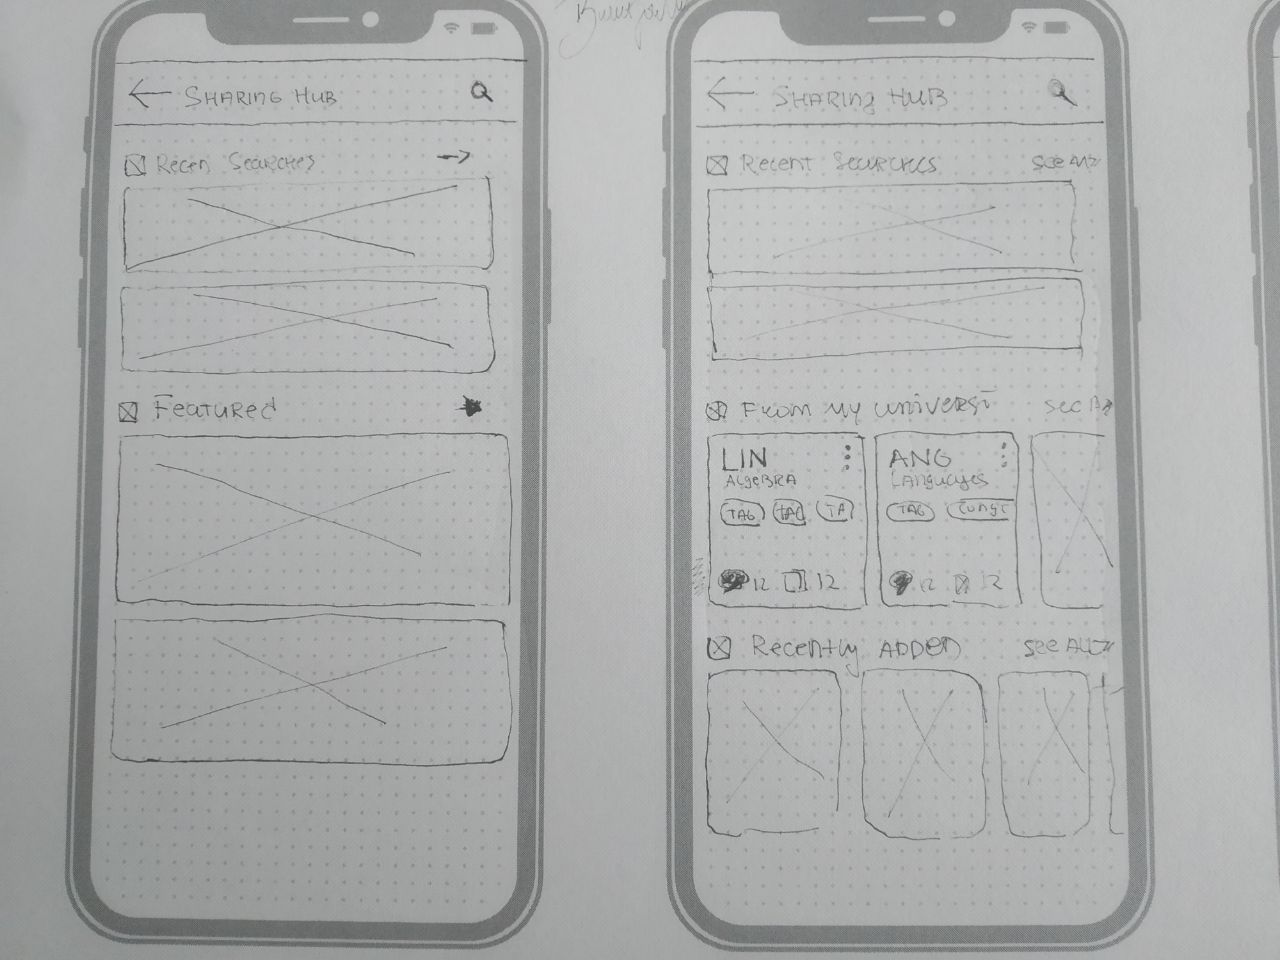 ← SHARING HUB
Recen Searches →
Featured
← SHARING HUB
Recent Searches See All
From my universi See A
LIN
ALgeBRA
TAG TAG TA
12 12
ANG
Languages
TAG
12 12
Recently ADDED See ALL